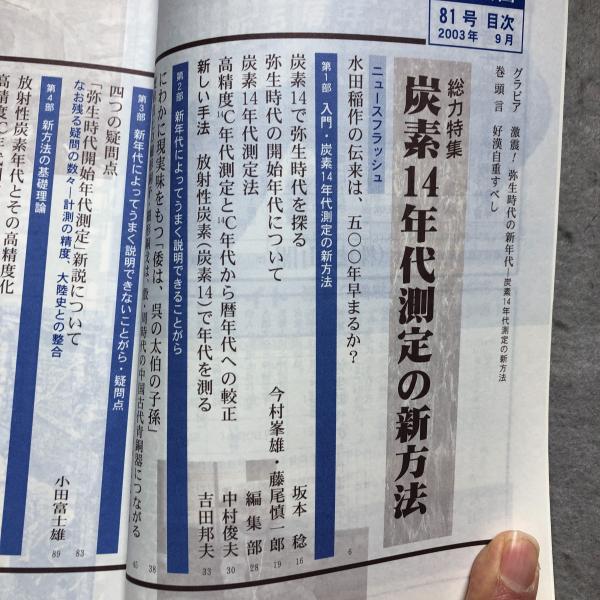 81号 目次
2003年 9月
グラビア 激震！弥生時代の新年代―炭素14年代測定の新方法
巻頭言 好漢自重すべし
総力特集
炭素14年代測定の新方法
ニュースフラッシュ
水田稲作の伝来は、五〇〇年早まるか？ 6
第1部 入門・炭素14年代測定の新方法
炭素14で弥生時代を探る 坂本 稔 16
弥生時代の開始年代について 今村峯雄・藤尾慎一郎 19
炭素14年代測定法 編集部 28
高精度¹⁴C年代測定と¹⁴C年代から暦年代への較正 中村俊夫 30
新しい手法 放射性炭素(炭素14)で年代を測る 吉田邦夫 33
第2部 新年代によってうまく説明できることがら
にわかに現実味をもつ「倭は、呉の太伯の子孫」 38
殷・周時代の中国古代青銅器につながる 45
第3部 新年代によってうまく説明できないことがら・疑問点
四つの疑問点 83
「弥生時代開始年代測定」新説について 小田富士雄 89
なお残る疑問の数々―計測の精度、大陸史との整合
第4部 新方法の基礎理論
放射性炭素年代とその高精度化